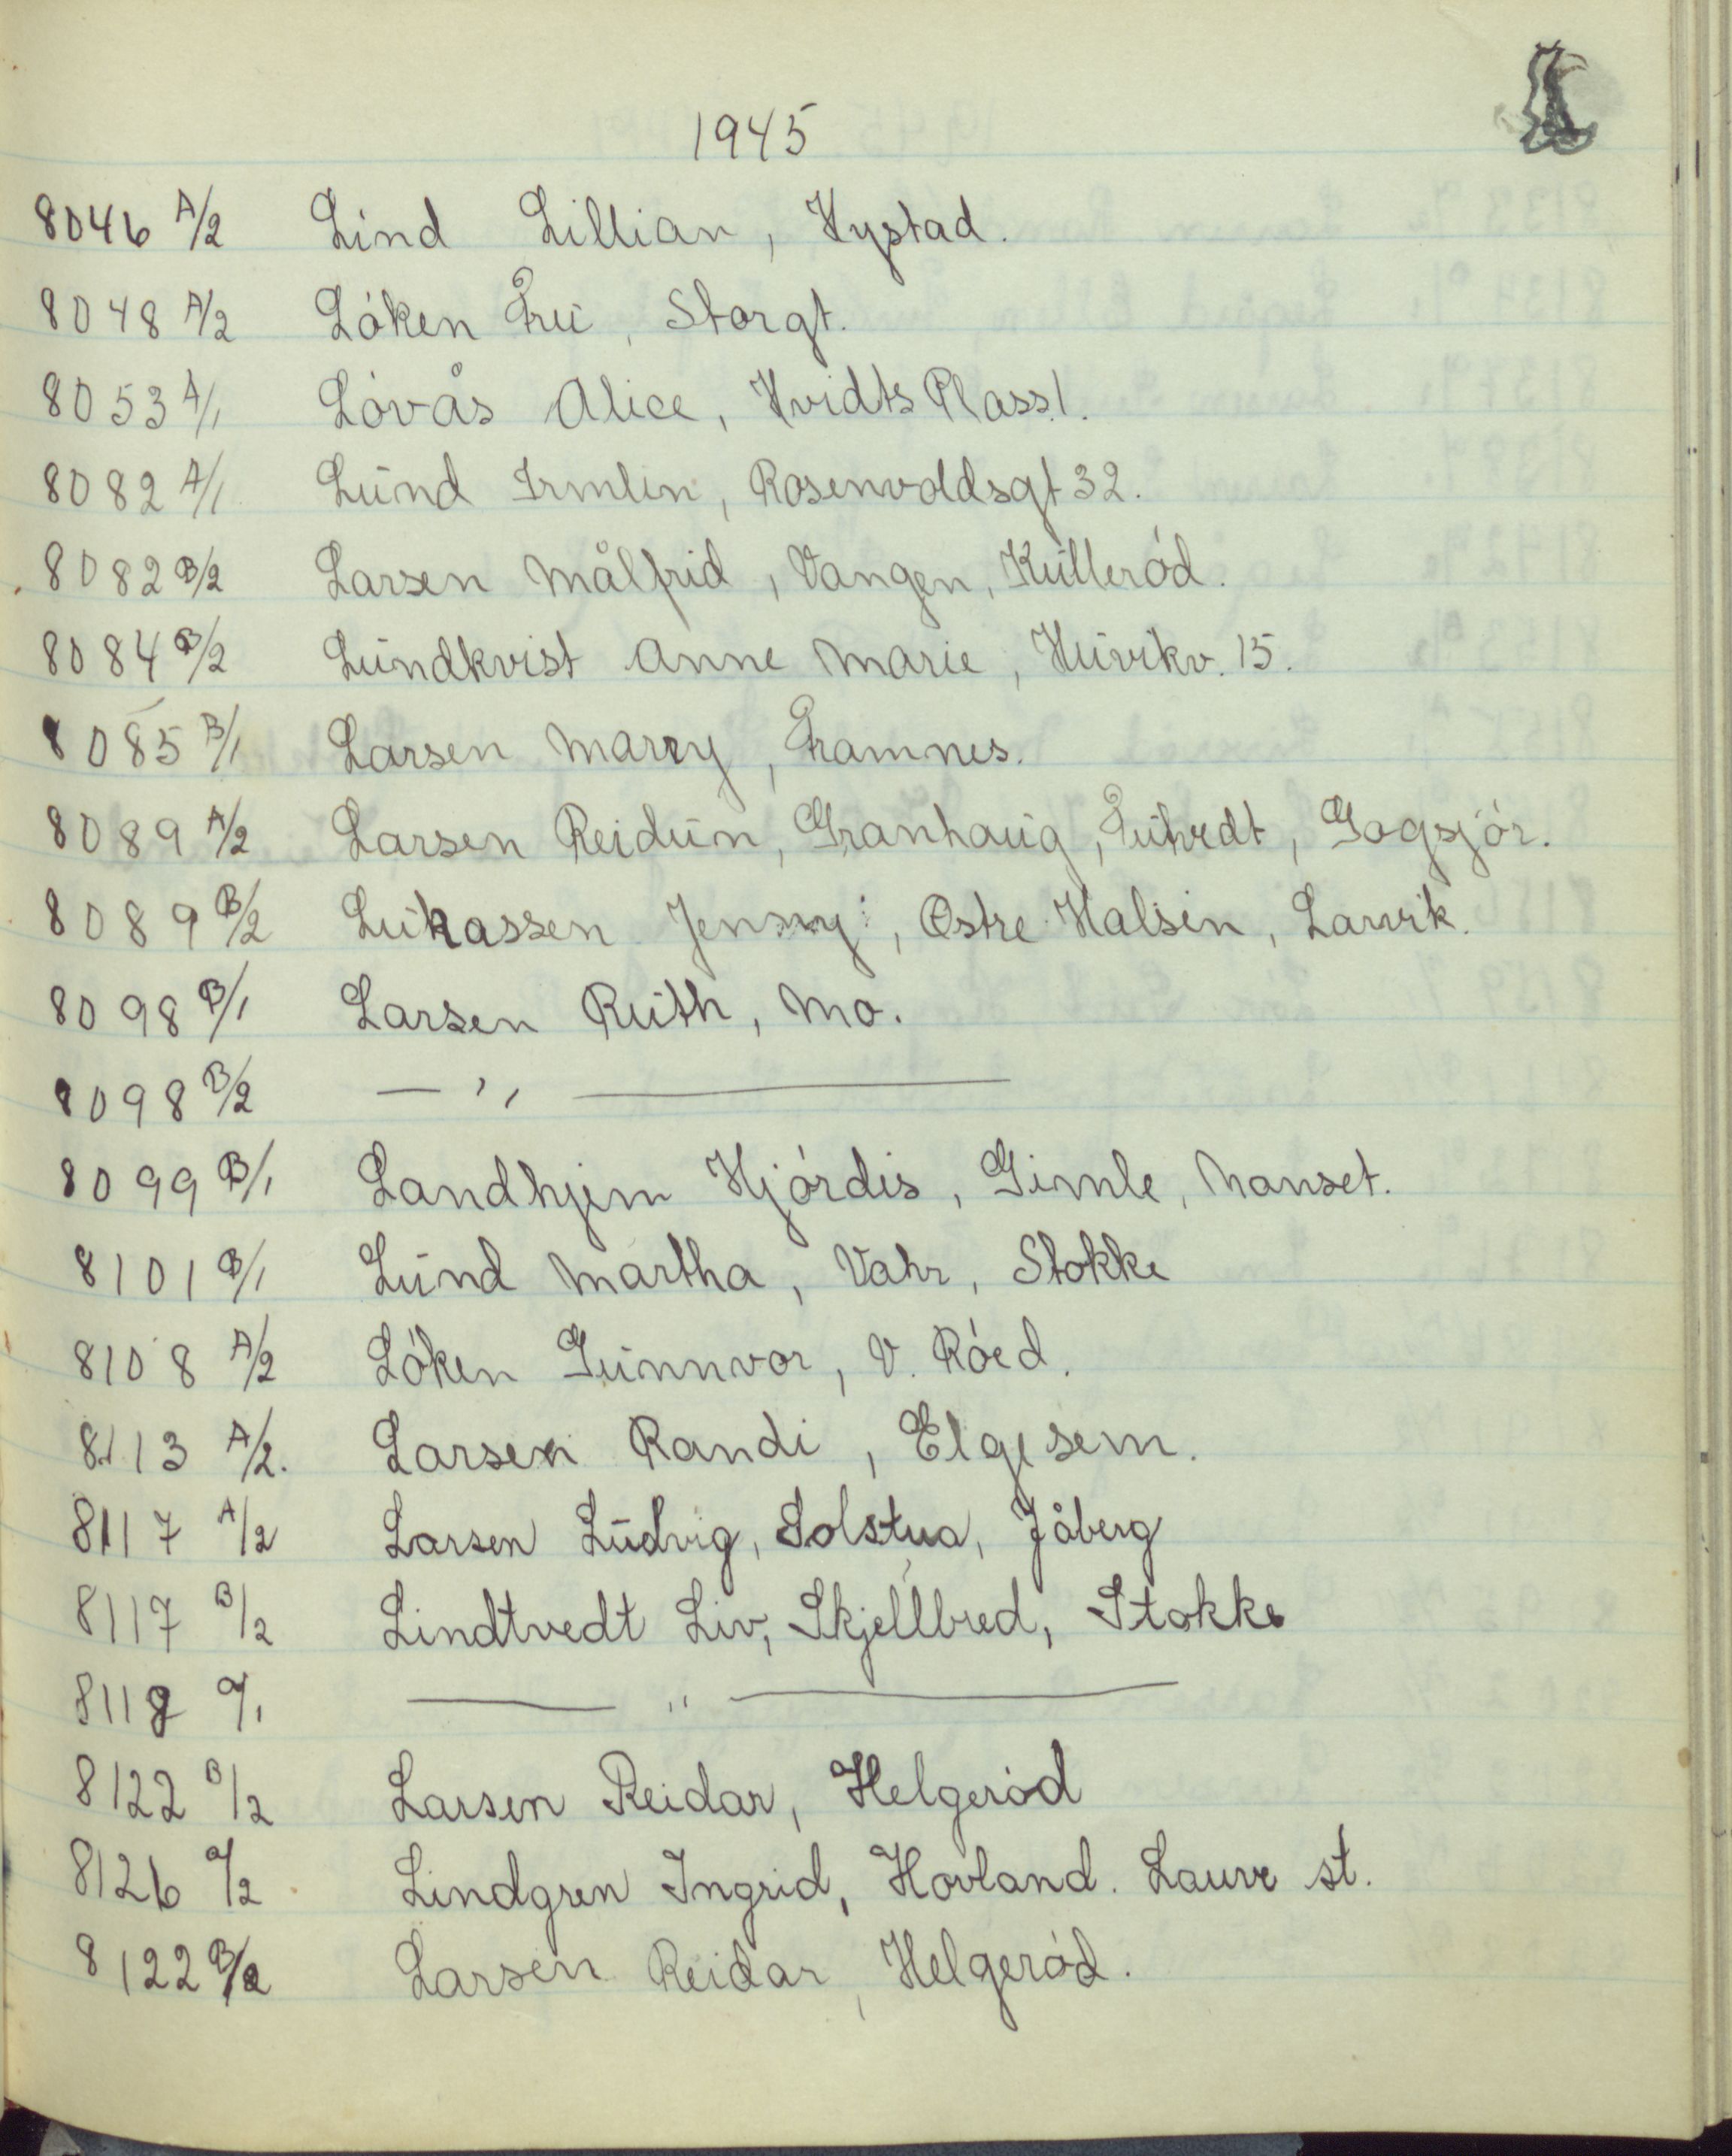 L
1945
8046 A/2 Lind Lillian, Hystad.
8048 A/2 Lóken Fru, Storgt.
8053 A/1 Lóvås Alice, Hvidts Plass 1.
8082 A/1 Lund Irmlin, Rosenvoldsgt 32.
8082 B/2 Larsen Målfrid, Vangen, Kulleród.
8084 B/2 Lundkvist Anne Marie, Huvikv. 15.
8085 B/1 Larsen Marry, Framnes.
8089 A/2 Larsen Reidun, Granhaug, Furedt, Gogsjór.
8089 B/2 Lukassen Jenny, Østre Halsen, Larvik.
8098 B/1 Larsen Ruth, Mo.
8098 B/2 — " —
8099 B/1 Landhjem Hjórdis, Gimle, Nanset.
8101 B/1 Lund Martha, Vahr, Stokke
8108 A/2 Lóken Gunnvor, V. Róed.
8113 A/2. Larsen Randi, Elgjsem.
8117 A/2 Larsen Ludvig, Solstua, Jåberg
8117 B/2 Lindtvedt Liv, Skjellbred, Stokke
8118 a/1 — " —
8122 B/2 Larsen Reidar, Helgeród
8126 a/2 Lindgren Ingrid, Hovland. Lauve st.
8122 B/2 Larsen Reidar, Helgeród.